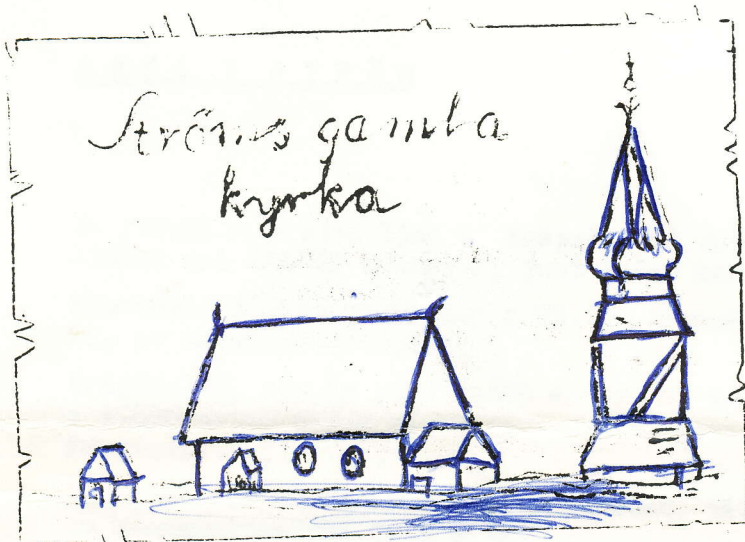 Ströms gamla
kyrka